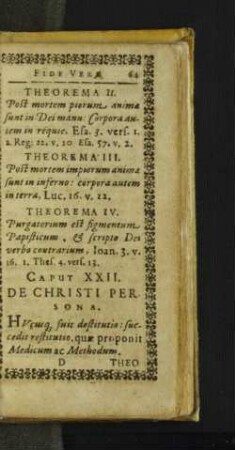 FIDE VERÆ 64
THEOREMA II.
Post mortem piorum animæ
sunt in Dei manu: Corpora au-
tem in requie. Esa. 3. vers. 1.
2. Reg: 22. v. 20 Esa. 57. v. 2.
THEOREMA III.
Post mortem impiorum animæ
sunt in inferno: corpora autem
in terra, Luc. 16. v. 22,
THEOREMA IV.
Purgatorium est figmentum
Papisticum, & scripto Dei
verbo contrarium. Ioan. 3. v.
16. 1. Thes. 4. vers. 13.
CAPUT XXII.
DE CHRISTI PER
SONA.
HVcusq, fuit destitutio: suc-
cedit restitutio, quæ proponit
Medicum ac Methodum.
D THEO